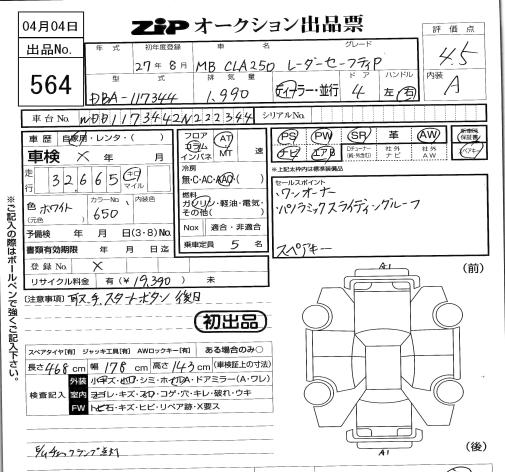 04月04日
ZiP オークション出品票
出品No.
564
年式 初年度登録 車名 グレード
27年8月 MB CLA250 レーダーセーフティP
型式 排気量 ドア ハンドル
DBA-117344 1,990 ディーラー・並行 4 左・右
評価点
4.5
内装
A
車台No. WDD1173442N222344 シリアルNo.
車歴 自家用・レンタ・( )
車検 × 年 月
走行 32665 キロ マイル
色 ホワイト (元色) カラーNo. 650 内装色
予備検 年 月 日(3・8)No.
書類有効期限 年 月 日迄
登録No. ×
リサイクル料金 有(¥19,390) 未
フロア コラム インパネ AT MT 速
冷房
無・C・AC・AAC
燃料
ガソリン・軽油・電気・その他( )
Nox 適合・非適合
乗車定員 5 名
PS PW SR 革 AW
ナビ エアB Dチューナー 社外ナビ 社外AW
新車時保証書
※上記太枠内は標準装備品
セールスポイント
・ワンオーナー
・パノラミックスライディングルーフ
スペアキー
[注意事項] 取名、スタートボタン 後日
初出品
スペアタイヤ[有] ジャッキ工具[有] AWロックキー[有] ある場合のみ○
長さ468cm 幅178cm 高さ143cm (車検証上の寸法)
検査記入
外装 小キズ・凹・シミ・ホイルA・ドアミラー(A・ワレ)
室内 ヨゴレ・キズ・スレ・コゲ・穴・キレ・破れ・ウキ
FW トビ石・キズ・ヒビ・リペア跡・X要ス
※ご記入の際はボールペンで強くご記入下さい。
A1 (前)
A1 (後)